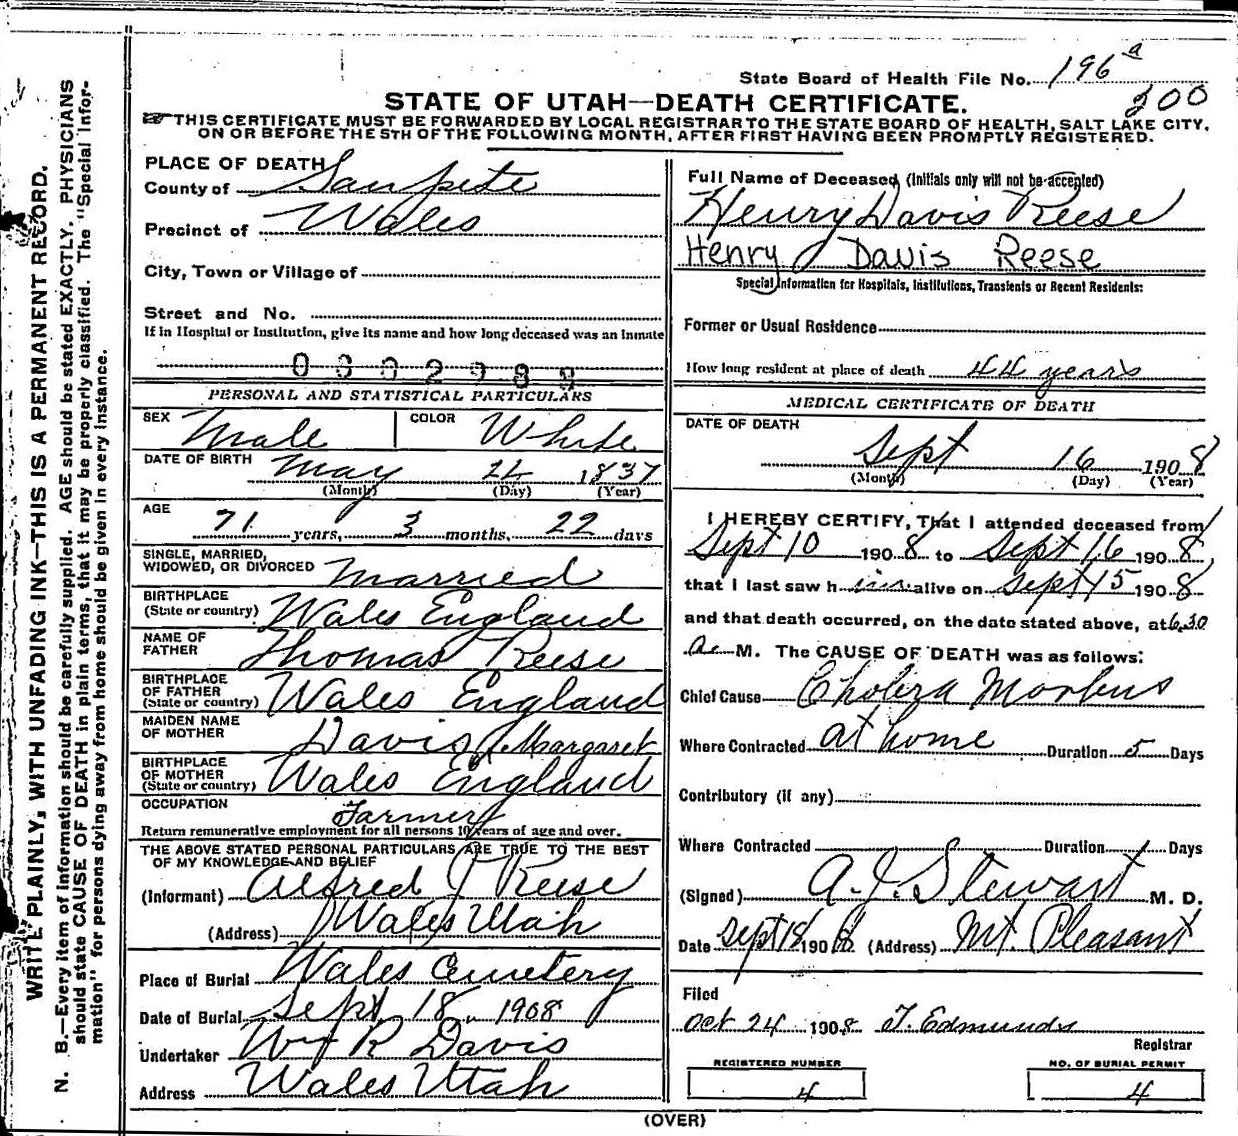 State Board of Health File No. 196a
300
STATE OF UTAH—DEATH CERTIFICATE.
THIS CERTIFICATE MUST BE FORWARDED BY LOCAL REGISTRAR TO THE STATE BOARD OF HEALTH, SALT LAKE CITY,
ON OR BEFORE THE 5TH OF THE FOLLOWING MONTH, AFTER FIRST HAVING BEEN PROMPTLY REGISTERED.
WRITE PLAINLY, WITH UNFADING INK—THIS IS A PERMANENT RECORD.
N. B.—Every item of information should be carefully supplied. AGE should be stated EXACTLY. PHYSICIANS
should state CAUSE OF DEATH in plain terms, that it may be properly classified. The "Special Infor-
mation" for persons dying away from home should be given in every instance.
PLACE OF DEATH
County of Sanpete
Precinct of Wales
City, Town or Village of
Street and No.
If in Hospital or Institution, give its name and how long deceased was an inmate
0802988
PERSONAL AND STATISTICAL PARTICULARS
SEX Male COLOR White
DATE OF BIRTH May 24 1837
(Month) (Day) (Year)
AGE 71 years, 3 months, 22 days
SINGLE, MARRIED,
WIDOWED, OR DIVORCED Married
BIRTHPLACE
(State or country) Wales England
NAME OF
FATHER Thomas Reese
BIRTHPLACE
OF FATHER
(State or country) Wales England
MAIDEN NAME
OF MOTHER Davis, Margaret
BIRTHPLACE
OF MOTHER
(State or country) Wales England
OCCUPATION Farmer
Return remunerative employment for all persons 10 years of age and over.
THE ABOVE STATED PERSONAL PARTICULARS ARE TRUE TO THE BEST
OF MY KNOWLEDGE AND BELIEF
(Informant) Alfred J Reese
(Address) Wales Utah
Place of Burial Wales Cemetery
Date of Burial Sept. 18, 1908
Undertaker Wm R Davis
Address Wales Utah
Full Name of Deceased (Initials only will not be accepted)
Henry Davis Reese
Henry Davis Reese
Special Information for Hospitals, Institutions, Transients or Recent Residents:
Former or Usual Residence
How long resident at place of death 44 years
MEDICAL CERTIFICATE OF DEATH
DATE OF DEATH
Sept 16 1908
(Month) (Day) (Year)
I HEREBY CERTIFY, That I attended deceased from
Sept 10 1908 to Sept 16 1908
that I last saw h im alive on Sept 15 1908
and that death occurred, on the date stated above, at 6.30
a. M. The CAUSE OF DEATH was as follows:
Chief Cause Cholera Morbus
Where Contracted at home Duration 5 Days
Contributory (if any)
Where Contracted Duration Days
(Signed) A. J. Stewart M. D.
Date Sept 18 1908 (Address) Mt. Pleasant
Filed
Oct 24 1908 T. Edmunds
Registrar
REGISTERED NUMBER
4
NO. OF BURIAL PERMIT
4
(OVER)